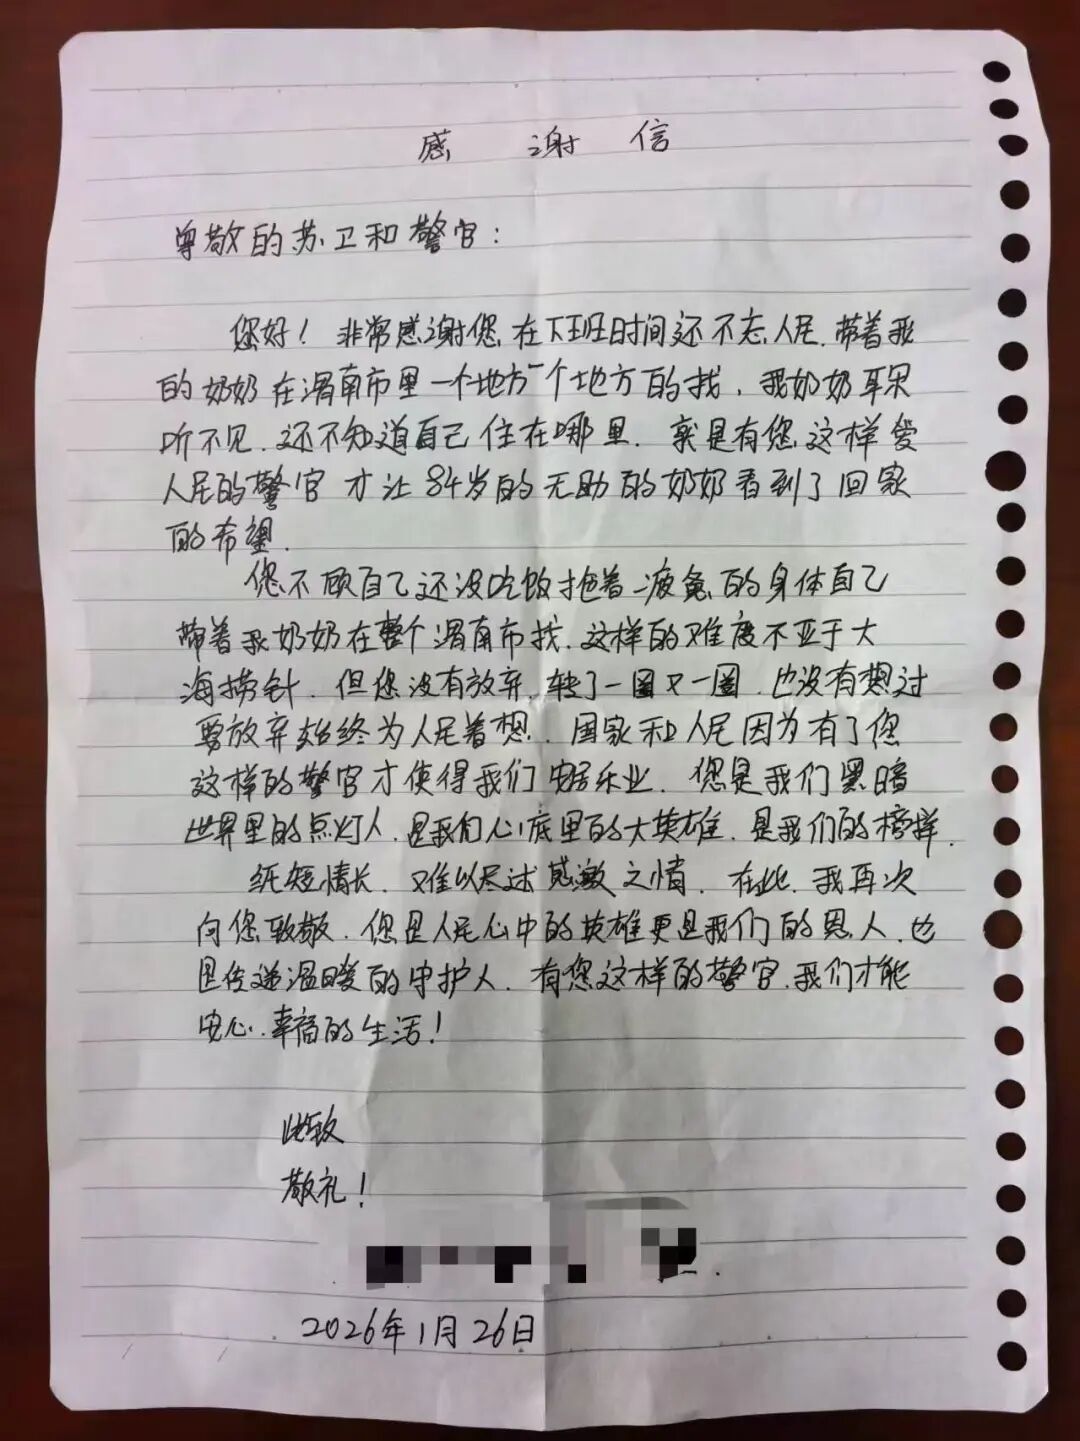 感 谢 信
尊敬的苏卫和警官:
您好! 非常感谢您,在下班时间还不忘人民.带着我
的奶奶在渭南市里一个地方一个地方的找,我奶奶耳朵
听不见.还不知道自己住在哪里.就是有您这样爱
人民的警官才让84岁的无助的奶奶看到了回家
的希望.
您不顾自己还没吃饭拖着疲惫的身体自己
带着我奶奶在整个渭南市找.这样的难度不亚于大
海捞针.但您没有放弃.转了一圈又一圈.也没有想过
要放弃始终为人民着想.国家和人民因为有了您
这样的警官才使得我们安居乐业.您是我们黑暗
世界里的点灯人.是我们心底里的大英雄.是我们的榜样.
纸短情长.难以尽述感激之情.在此.我再次
向您致敬.您是人民心中的英雄更是我们的恩人.也
是传递温暖的守护人.有您这样的警官.我们才能
安心.幸福的生活!
此致
敬礼!
2026年1月26日